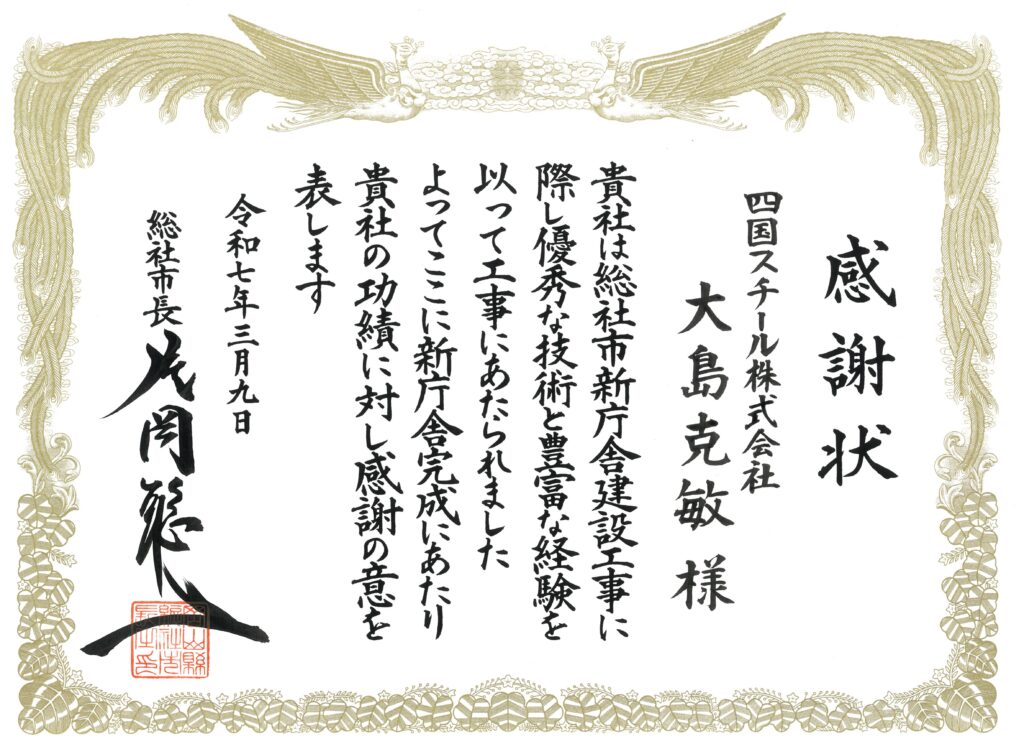 感謝状
四国スチール株式会社
大島克敏様
貴社は総社市新庁舎建設工事に
際し優秀な技術と豊富な経験を
以って工事にあたられました
よってここに新庁舎完成にあたり
貴社の功績に対し感謝の意を
表します
令和七年三月九日
総社市長 片岡聡一